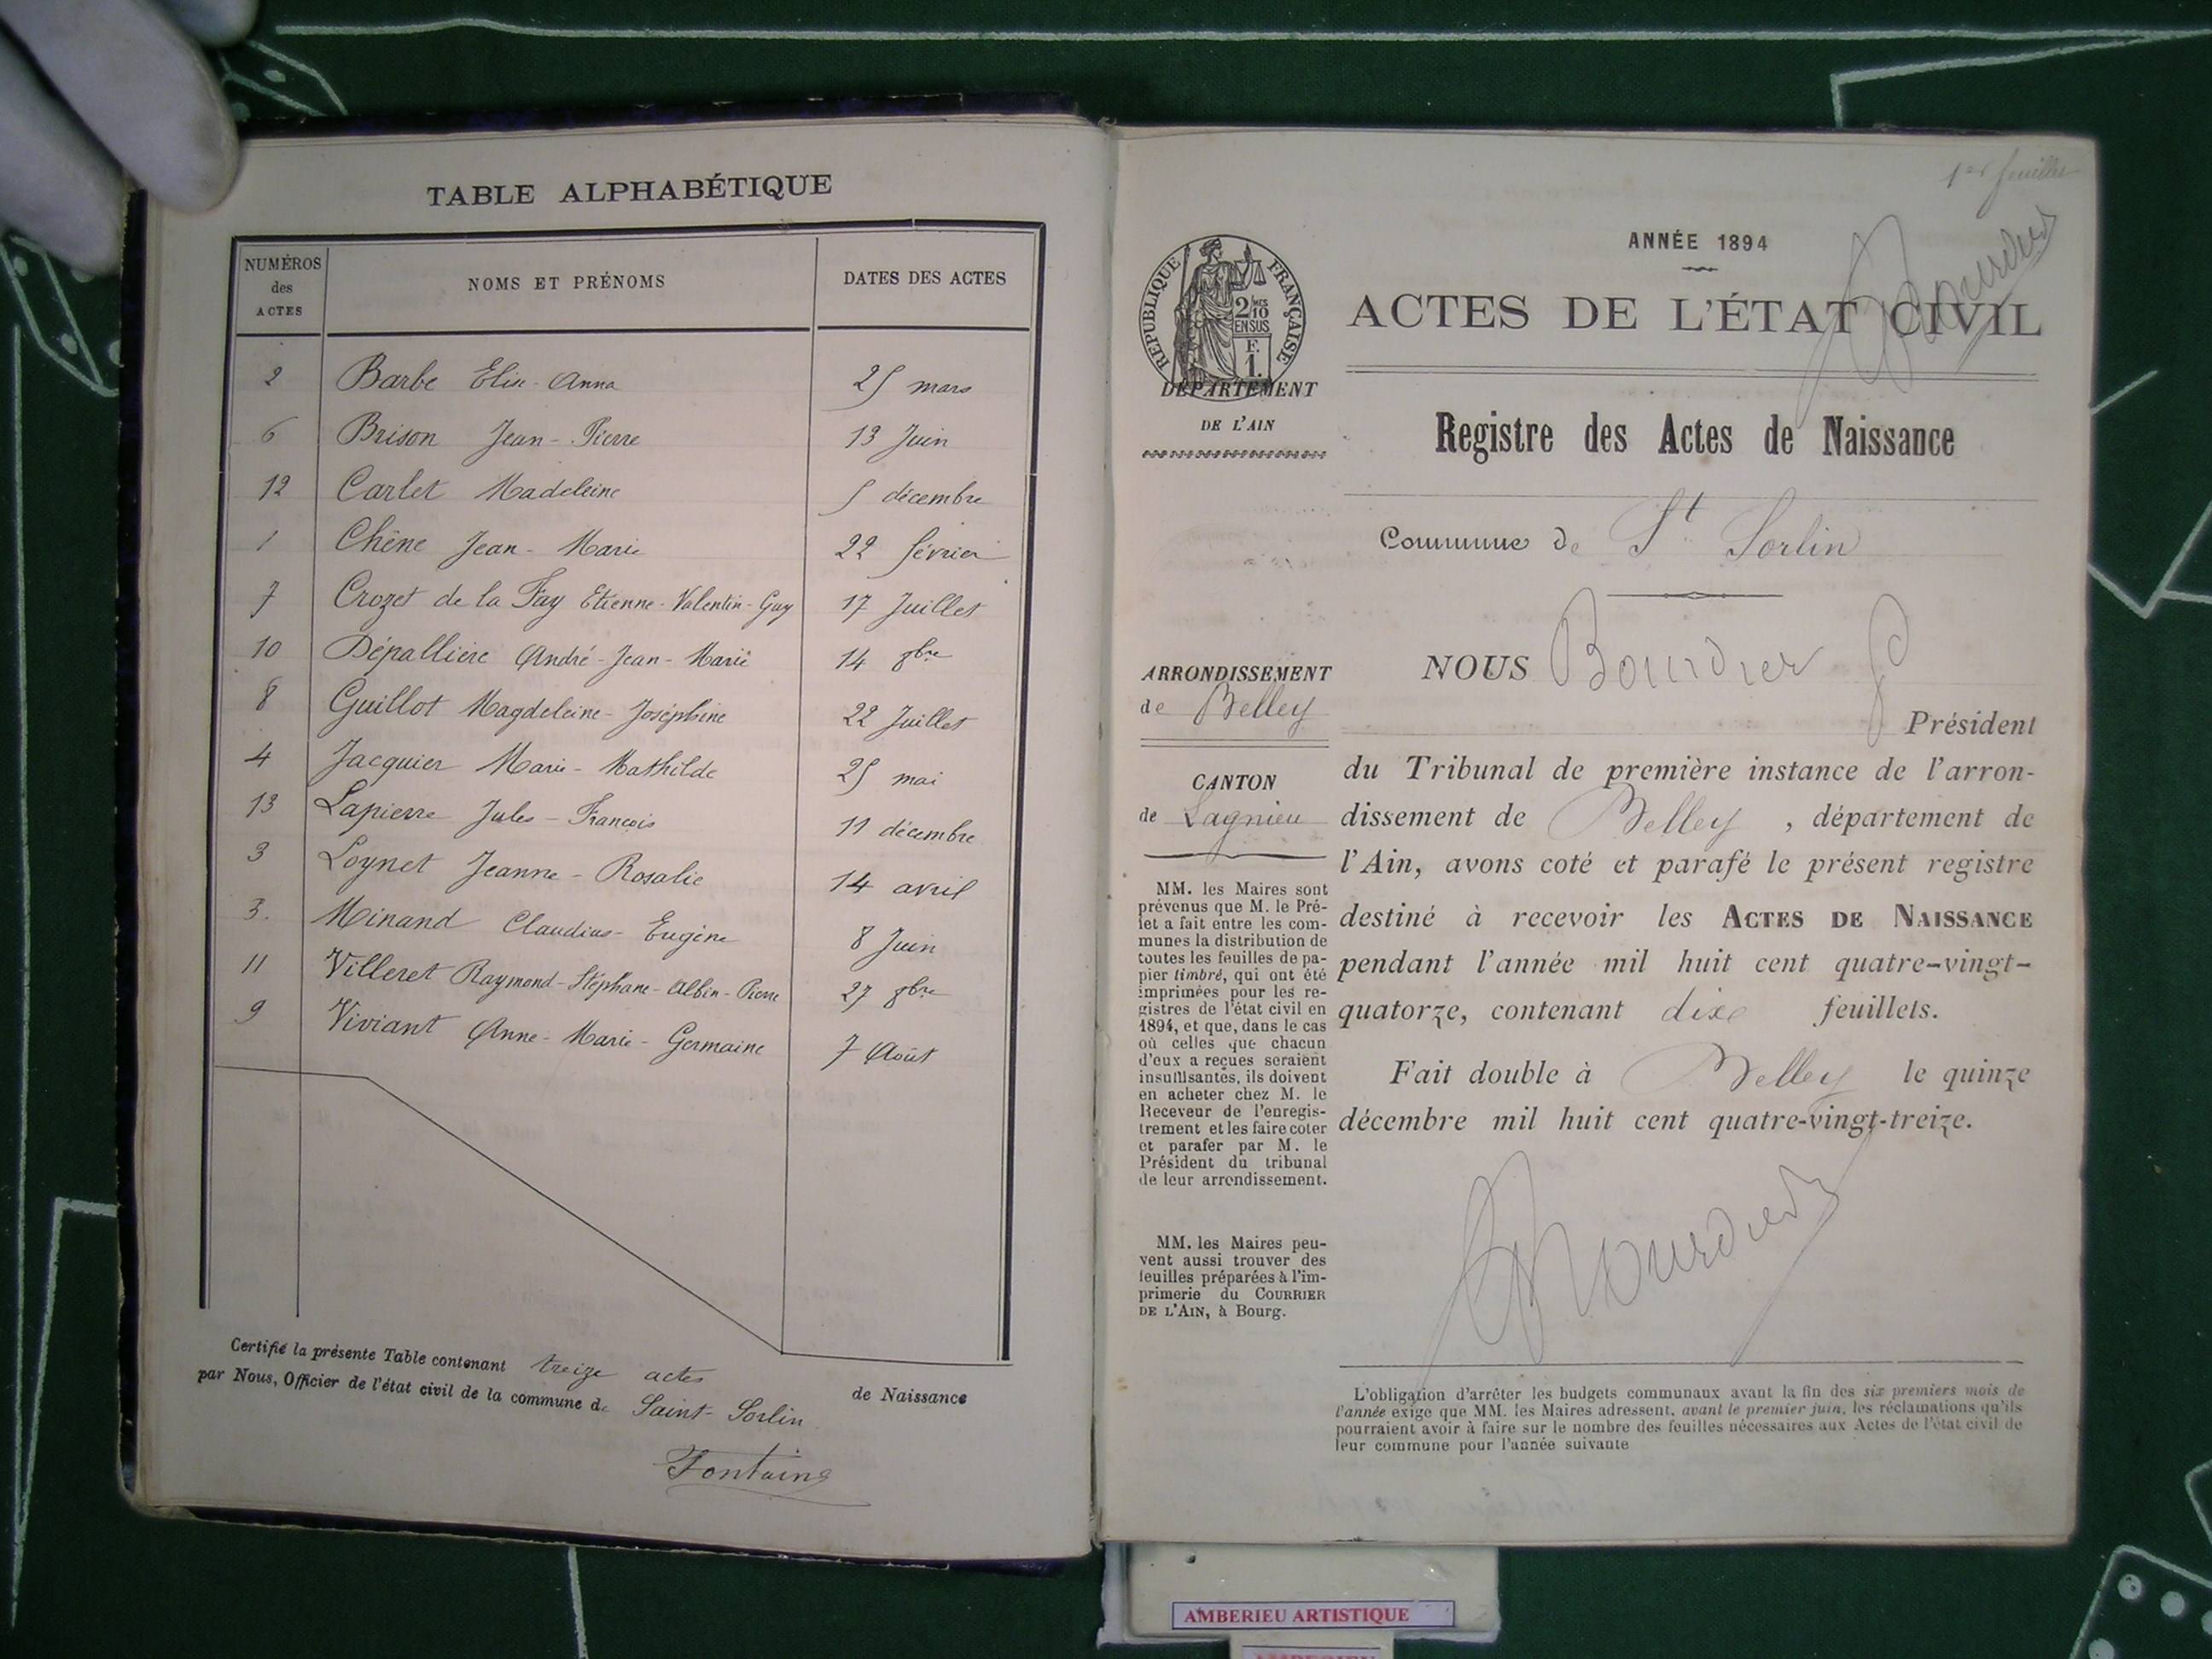 TABLE ALPHABÉTIQUE
NUMÉROS des ACTES NOMS ET PRÉNOMS DATES DES ACTES
2 Barbe Elise-Anna 25 mars
6 Brison Jean-Pierre 13 Juin
12 Carlet Madeleine 5 décembre
1 Chêne Jean-Marie 22 février
7 Crozet de la Fay Etienne-Valentin-Guy 17 Juillet
10 Dépallière André-Jean-Marie 14 8bre
8 Guillot Magdeleine-Joséphine 22 Juillet
4 Jacquier Marie-Mathilde 25 mai
13 Lapierre Jules-François 11 décembre
3 Loynet Jeanne-Rosalie 14 avril
3. Minand Claudius-Eugène 8 Juin
11 Villeret Raymond-Stéphane-Albin-Pierre 27 8bre
9 Viviant Anne-Marie-Germaine 7 Août
Certifié la présente Table contenant treize actes de Naissance
par Nous, Officier de l'état civil de la commune de Saint-Sorlin
Fontaine
1er feuillet
Bourdier
ANNÉE 1894
ACTES DE L'ÉTAT CIVIL
RÉPUBLIQUE FRANÇAISE
2/10 MES
EN SUS
F.
1.
DÉPARTEMENT
DE L'AIN
Registre des Actes de Naissance
Commune de St Sorlin
ARRONDISSEMENT
de Belley
CANTON
de Lagnieu
MM. les Maires sont
prévenus que M. le Pré-
fet a fait entre les com-
munes la distribution de
toutes les feuilles de pa-
pier timbré, qui ont été
imprimées pour les re-
gistres de l'état civil en
1894, et que, dans le cas
où celles que chacun
d'eux a reçues seraient
insuffisantes, ils doivent
en acheter chez M. le
Receveur de l'enregis-
trement et les faire coter
et parafer par M. le
Président du tribunal
de leur arrondissement.
MM. les Maires peu-
vent aussi trouver des
feuilles préparées à l'im-
primerie du COURRIER
DE L'AIN, à Bourg.
NOUS Bourdier
Président
du Tribunal de première instance de l'arron-
dissement de Belley, département de
l'Ain, avons coté et parafé le présent registre
destiné à recevoir les ACTES DE NAISSANCE
pendant l'année mil huit cent quatre-vingt-
quatorze, contenant dix feuillets.
Fait double à Belley le quinze
décembre mil huit cent quatre-vingt-treize.
Bourdier
L'obligation d'arrêter les budgets communaux avant la fin des six premiers mois de
l'année exige que MM. les Maires adressent, avant le premier juin, les réclamations qu'ils
pourraient avoir à faire sur le nombre des feuilles nécessaires aux Actes de l'état civil de
leur commune pour l'année suivante
AMBERIEU ARTISTIQUE